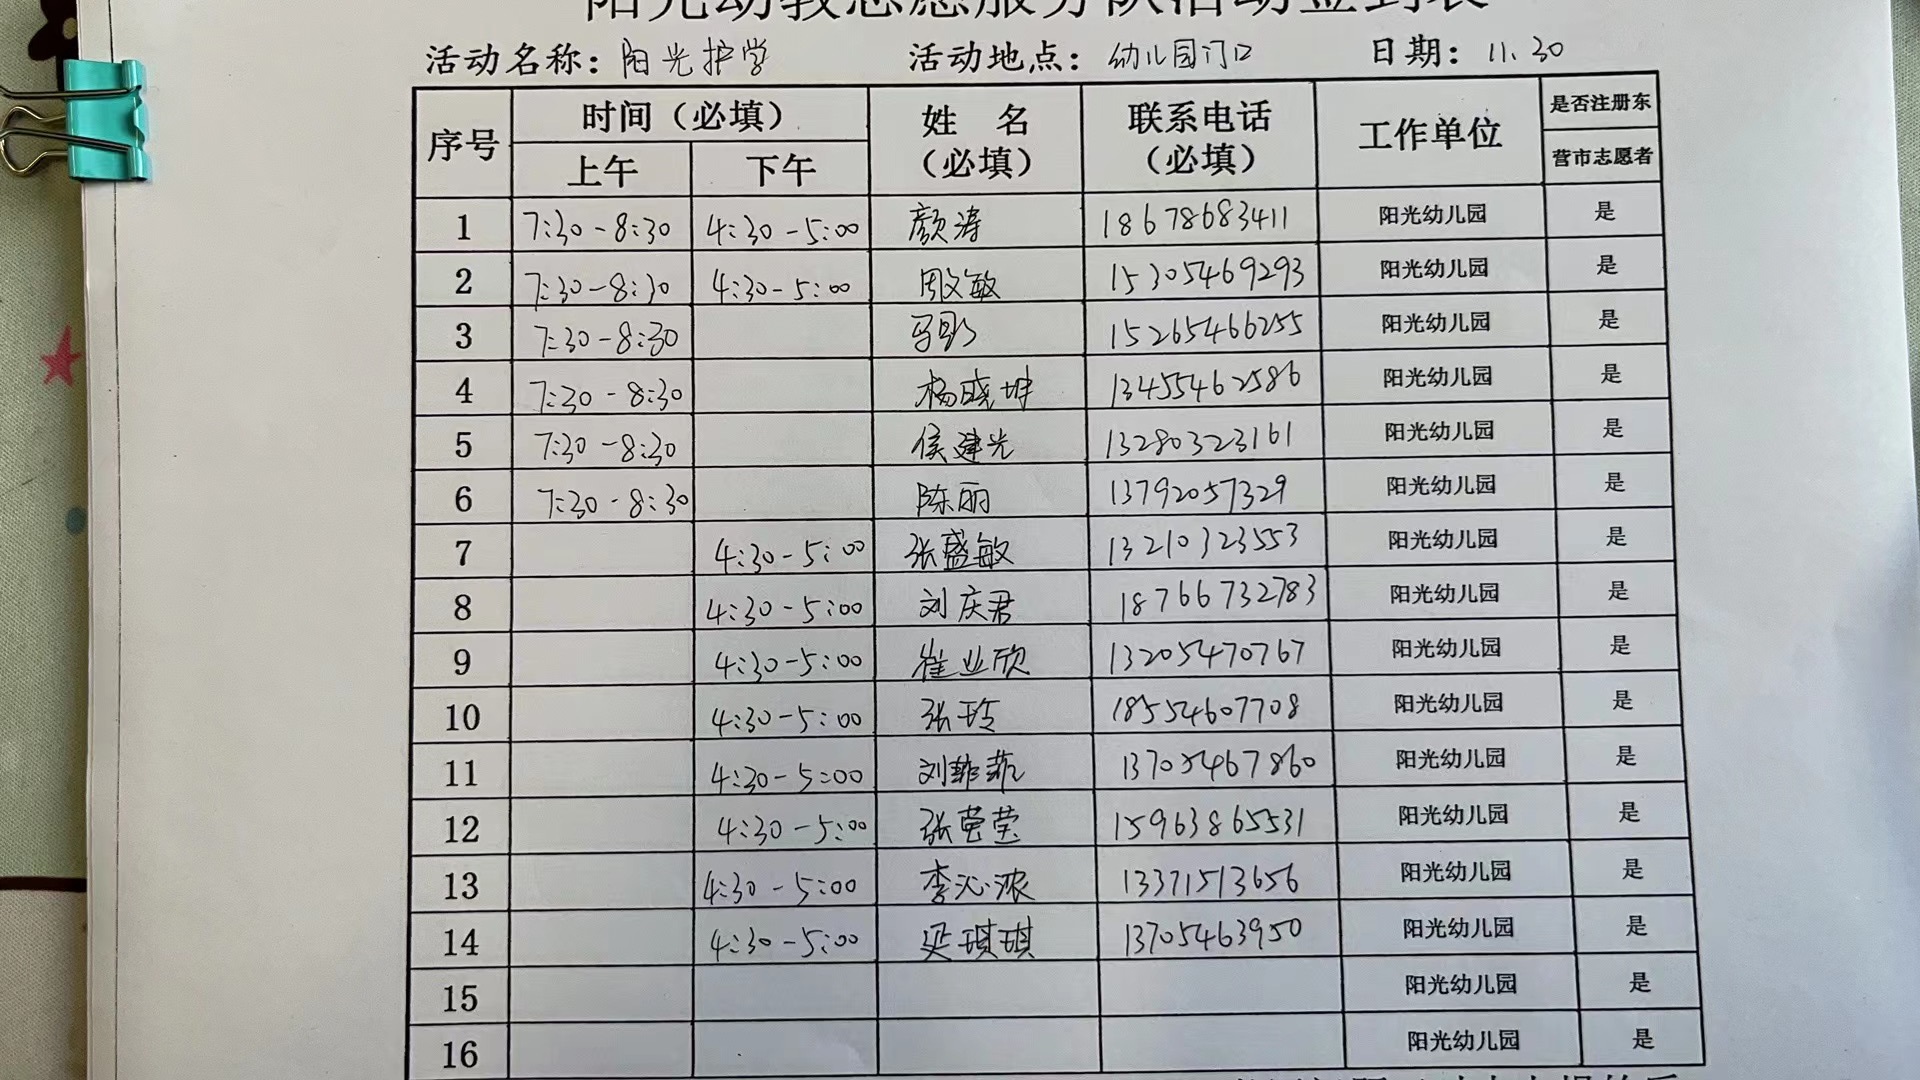 阳光幼教志愿服务队活动签到表
活动名称：阳光护学 活动地点：幼儿园门口 日期：11.30
序号 时间（必填） 姓 名（必填） 联系电话（必填） 工作单位 是否注册东营市志愿者
上午 下午
1 7:30-8:30 4:30-5:00 颜涛 18678683411 阳光幼儿园 是
2 7:30-8:30 4:30-5:00 殷敏 15305469293 阳光幼儿园 是
3 7:30-8:30 马影 15265466255 阳光幼儿园 是
4 7:30-8:30 杨晓坤 13455462586 阳光幼儿园 是
5 7:30-8:30 侯建光 13280323161 阳光幼儿园 是
6 7:30-8:30 陈丽 13792057329 阳光幼儿园 是
7 4:30-5:00 张盛敏 13210323553 阳光幼儿园 是
8 4:30-5:00 刘庆君 18766732783 阳光幼儿园 是
9 4:30-5:00 崔业欣 13205470767 阳光幼儿园 是
10 4:30-5:00 张玲 18554607708 阳光幼儿园 是
11 4:30-5:00 刘菲菲 13705467860 阳光幼儿园 是
12 4:30-5:00 张莹莹 15963865531 阳光幼儿园 是
13 4:30-5:00 李沁浓 13371513656 阳光幼儿园 是
14 4:30-5:00 延琪琪 13705463950 阳光幼儿园 是
15 阳光幼儿园 是
16 阳光幼儿园 是